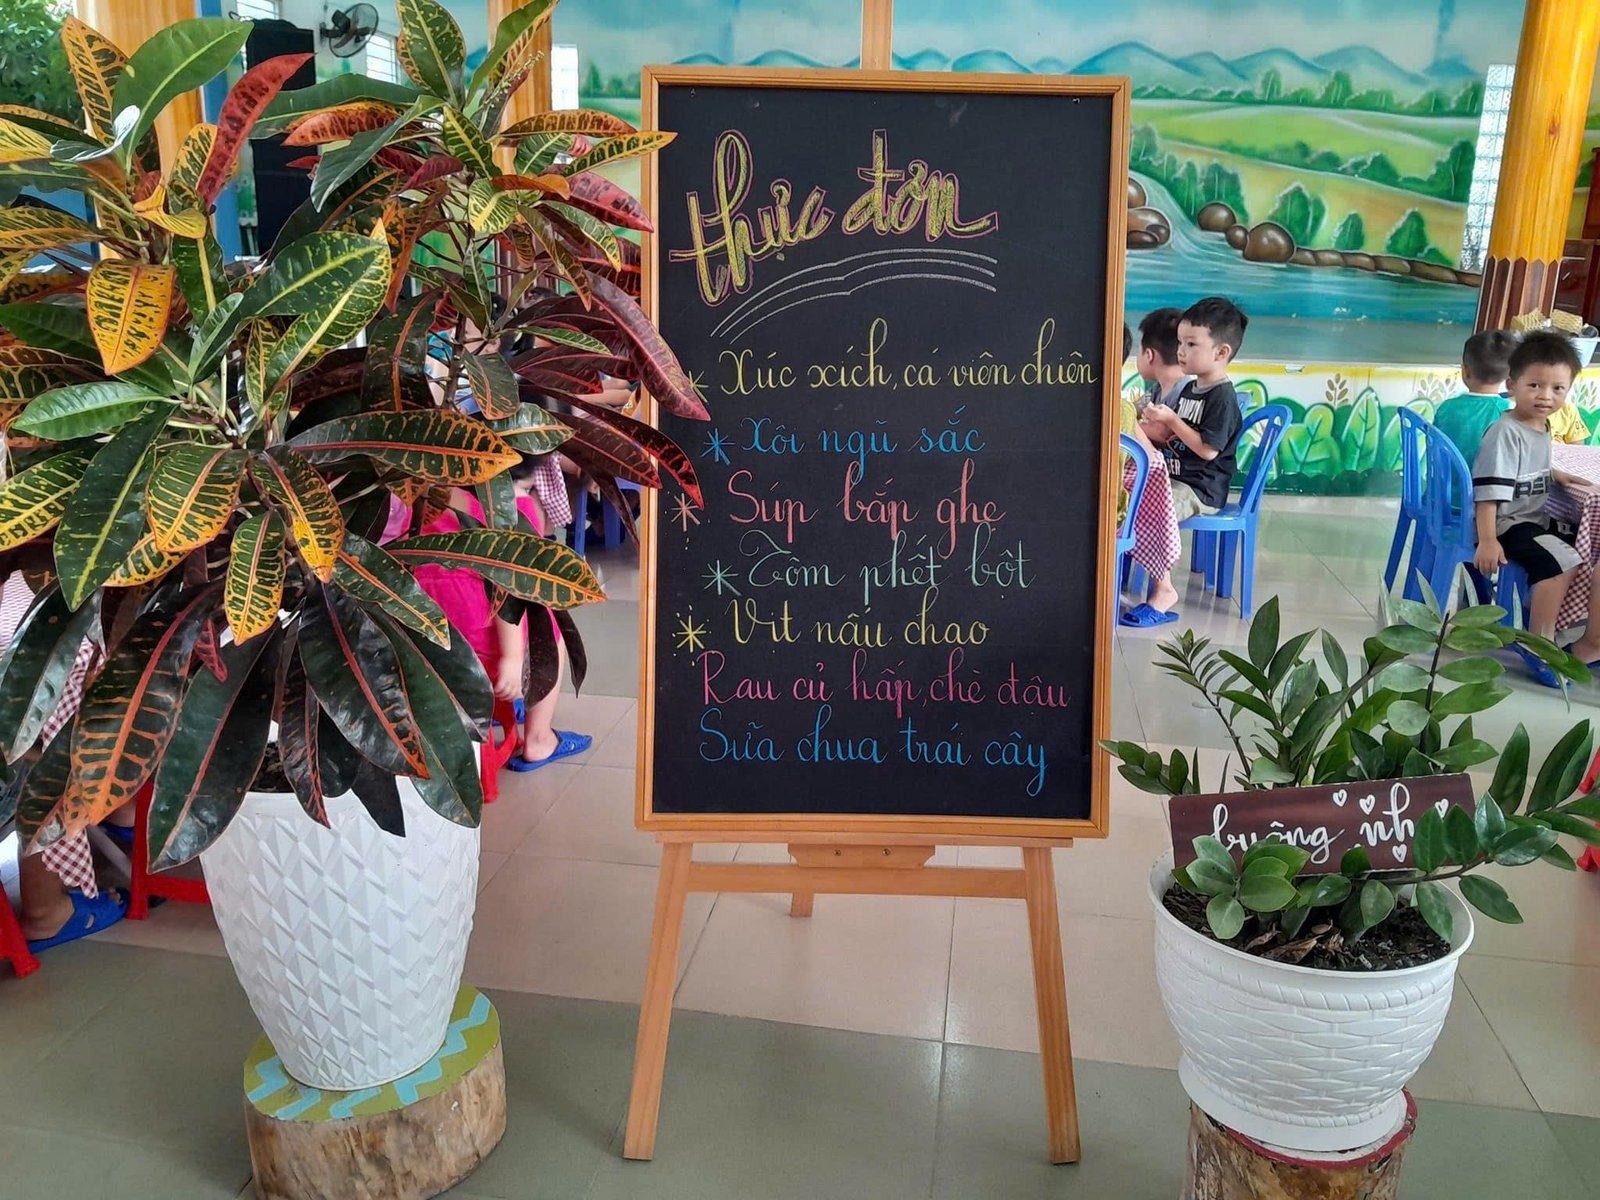 thực đơn
* Xúc xích, cá viên chiên
* Xôi ngũ sắc
* Súp bắp ghẹ
* Tôm phết bột
* Vịt nấu chao
Rau củ hấp, chè đâu
Sữa chua trái cây
buông nh